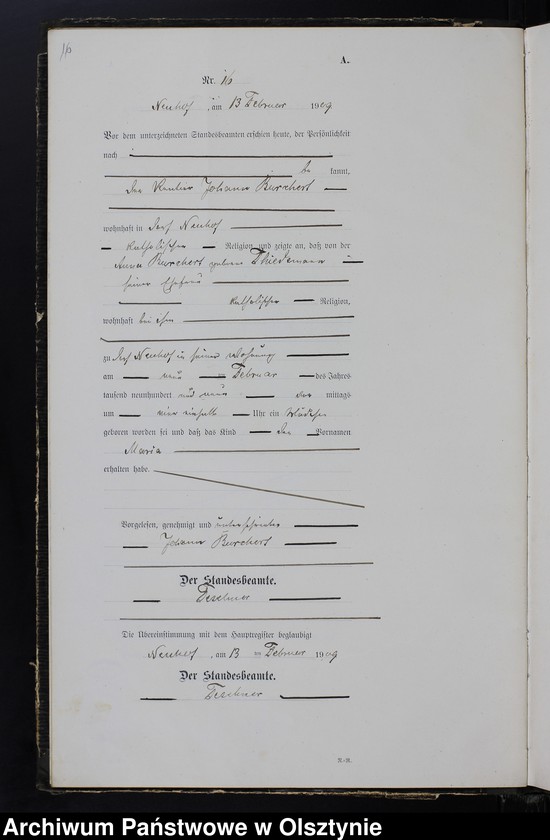 16
A.
Nr. 16
Neuhof, am 13 Februar 1909
Vor dem unterzeichneten Standesbeamten erschien heute, der Persönlichkeit
nach
be kannt,
der Johann Burchert
wohnhaft in Dorf Neuhof
katholischer Religion, und zeigte an, daß von der
Anna Burchert geborene Thiedemann
seiner Ehefrau
katholischer Religion,
wohnhaft bei ihm
zu Dorf Neuhof in seiner Wohnung
am Februar des Jahres
tausend neunhundert und neun mittags
um Uhr ein Mädchen
geboren worden sei und daß das Kind den Vornamen
Maria
erhalten habe.
Vorgelesen, genehmigt und unterschrieben
Johann Burchert
Der Standesbeamte.
Teschner
Die Übereinstimmung mit dem Hauptregister beglaubigt
Neuhof, am 13 ten Februar 1909
Der Standesbeamte.
Teschner
R.-R.
Archiwum Państwowe w Olsztynie